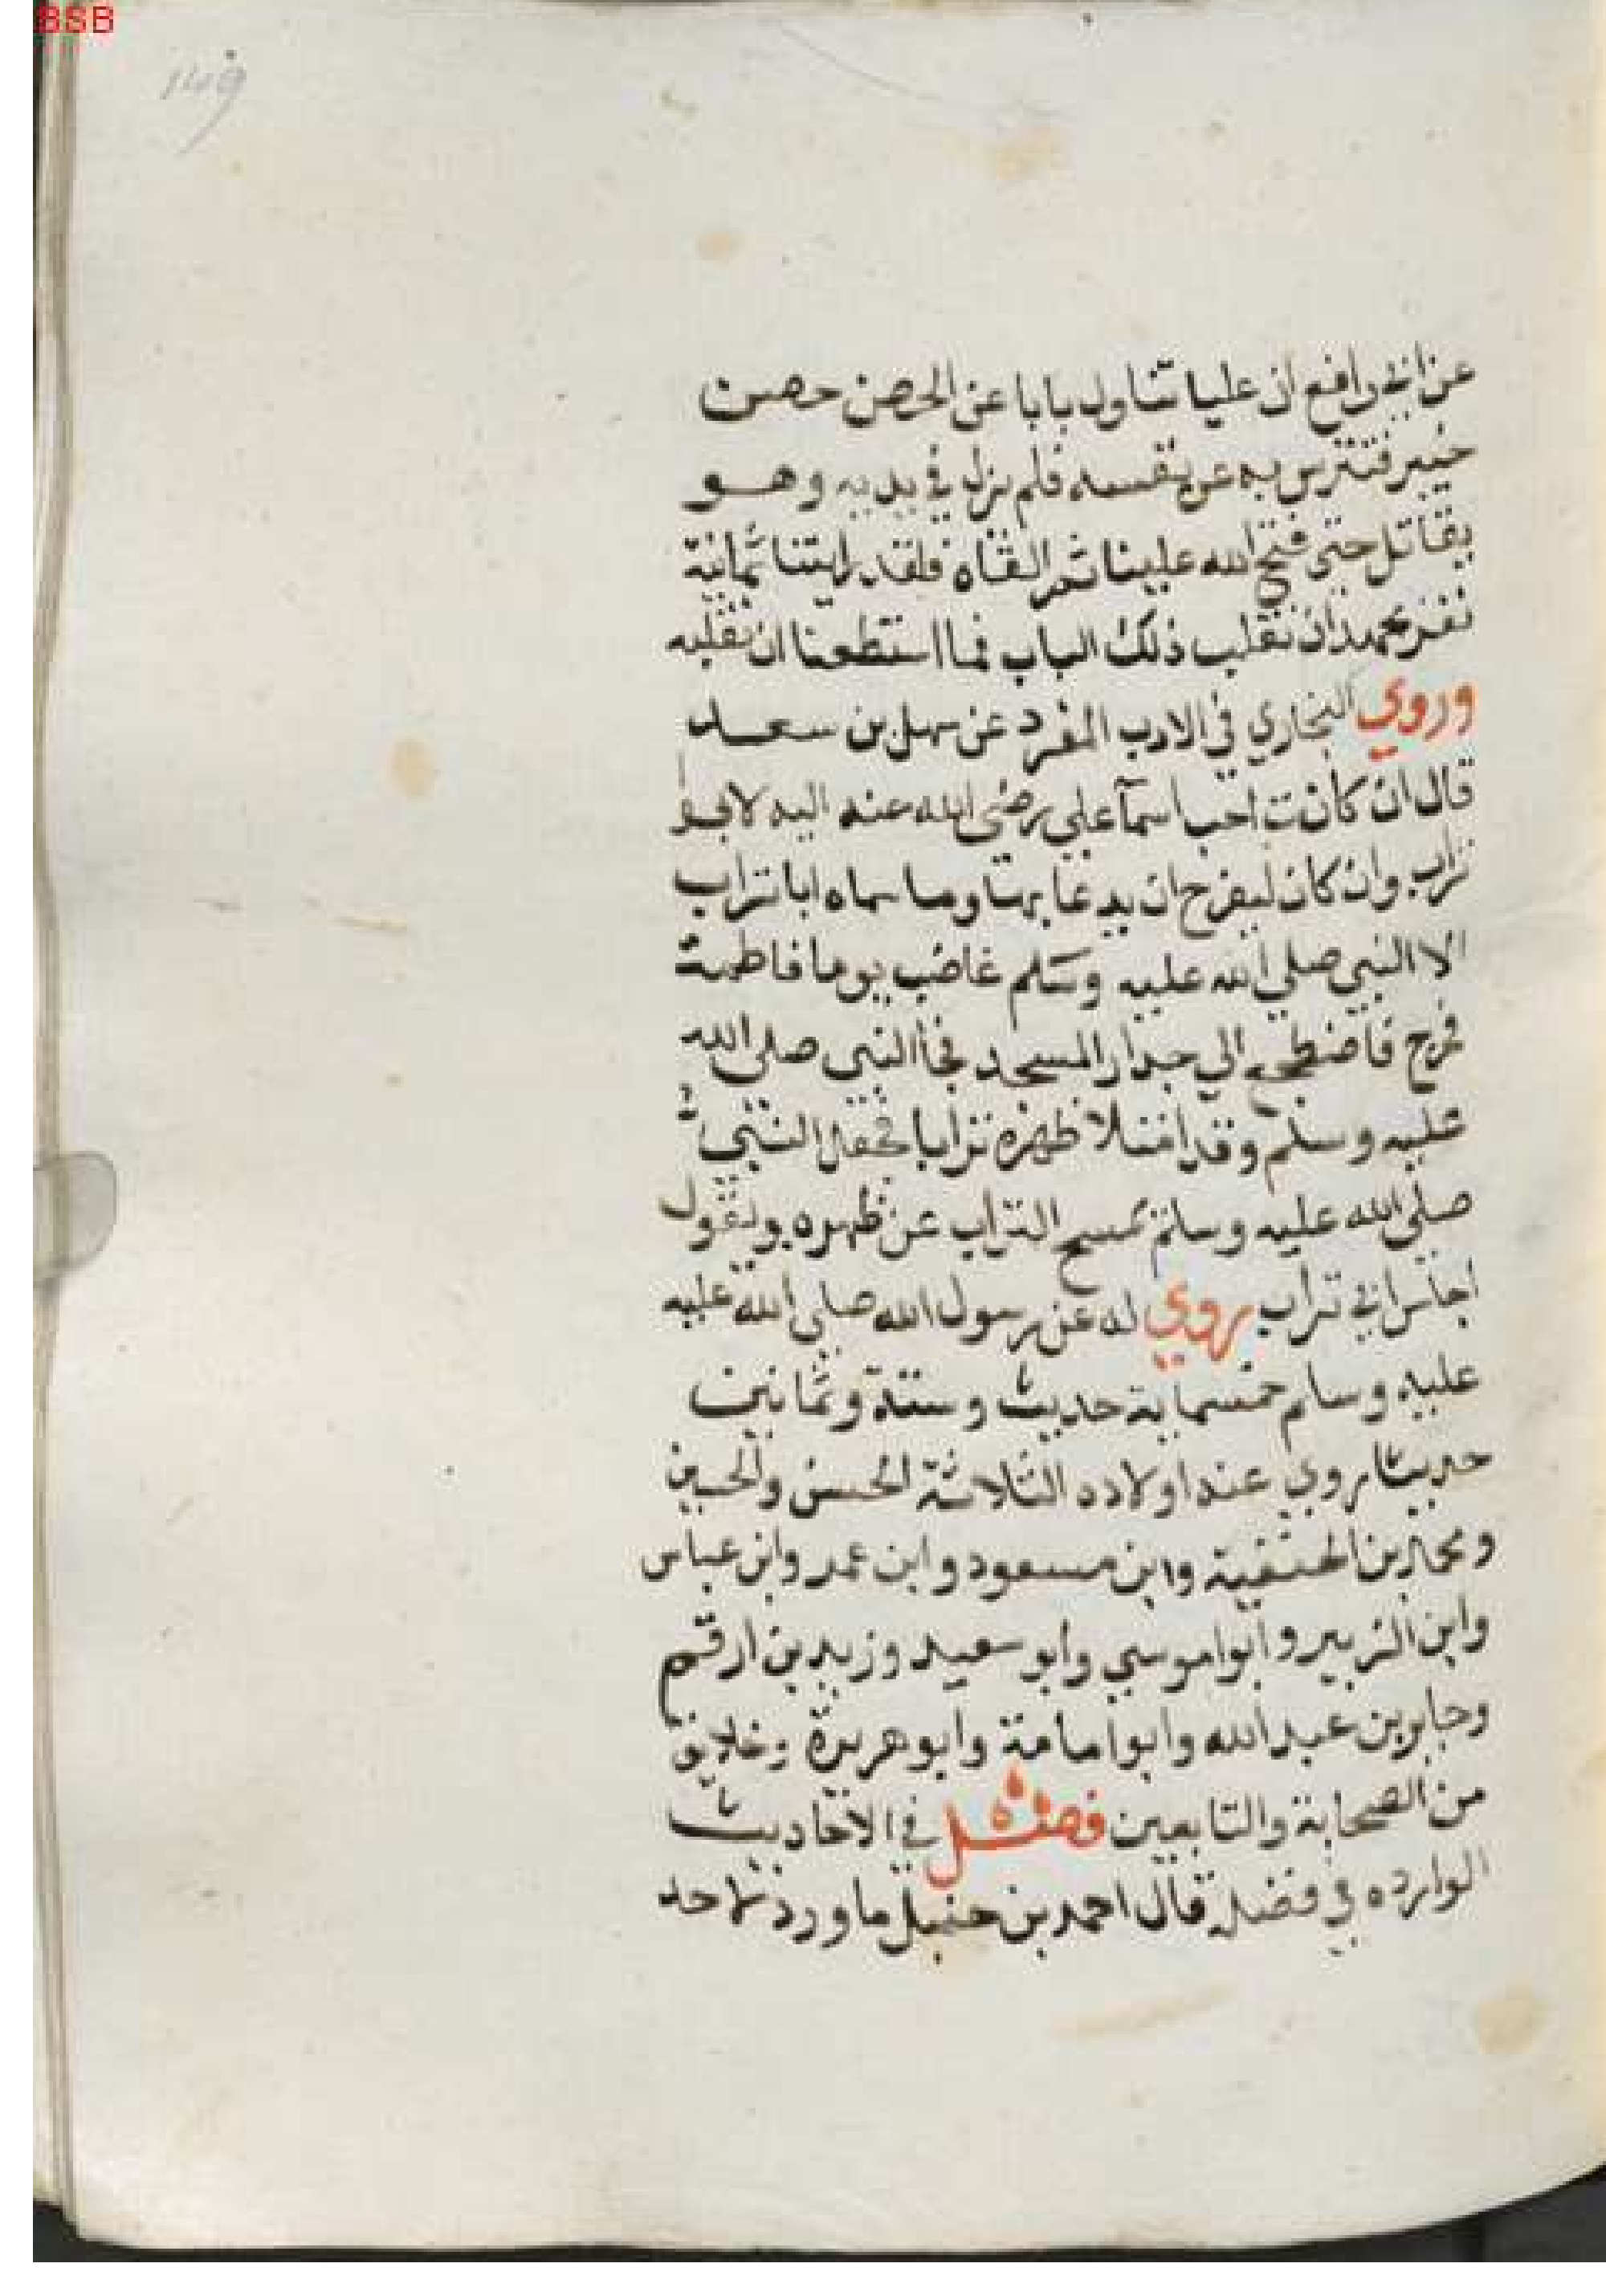 BSB
عن ابي رافع ان عليا تناول بابا عن الحصن حصن
خيبر فتترس به عن نفسه فلم يزل في يديه وهو
يقاتل حتى فتح الله علينا ثم القاه فلقد رايتنا ثمانية
نفر نجهد ان نقلب ذلك الباب فما استطعنا ان نقلبه
وروي البخاري في الادب المفرد عن سهل بن سعد
قال ان كانت احب اسمآ علي رضى الله عنه اليه لابو
تراب وان كان ليفرح ان يدعا بها وما سماه ابا تراب
الا النبي صلي الله عليه وسلم غاضب يوما فاطمة
فخرج فاضطجع الي جدار المسجد فجا النبي صلى الله
عليه وسلم وقد امتلا ظهره ترابا فجعل النبي
صلى الله عليه وسلم يمسح التراب عن ظهره ويقول
اجلس ابي تراب روي له عن رسول الله صلى الله عليه
عليه وسلم خمسماية حديث وستة وثمانين
حديثا روي عنه اولاده الثلاثة الحسن والحسين
ومحمد بن الحنفية وابن مسعود وابن عمر وابن عباس
وابن الزبير وابوا موسي وابو سعيد وزيد بن ارقم
وجابر بن عبد الله وابوا مامة وابو هريرة وخلايق
من الصحابة والتابعين فصل في الاحاديث
الوارده في فضله قال احمد بن حنبل ما ورد لاحد